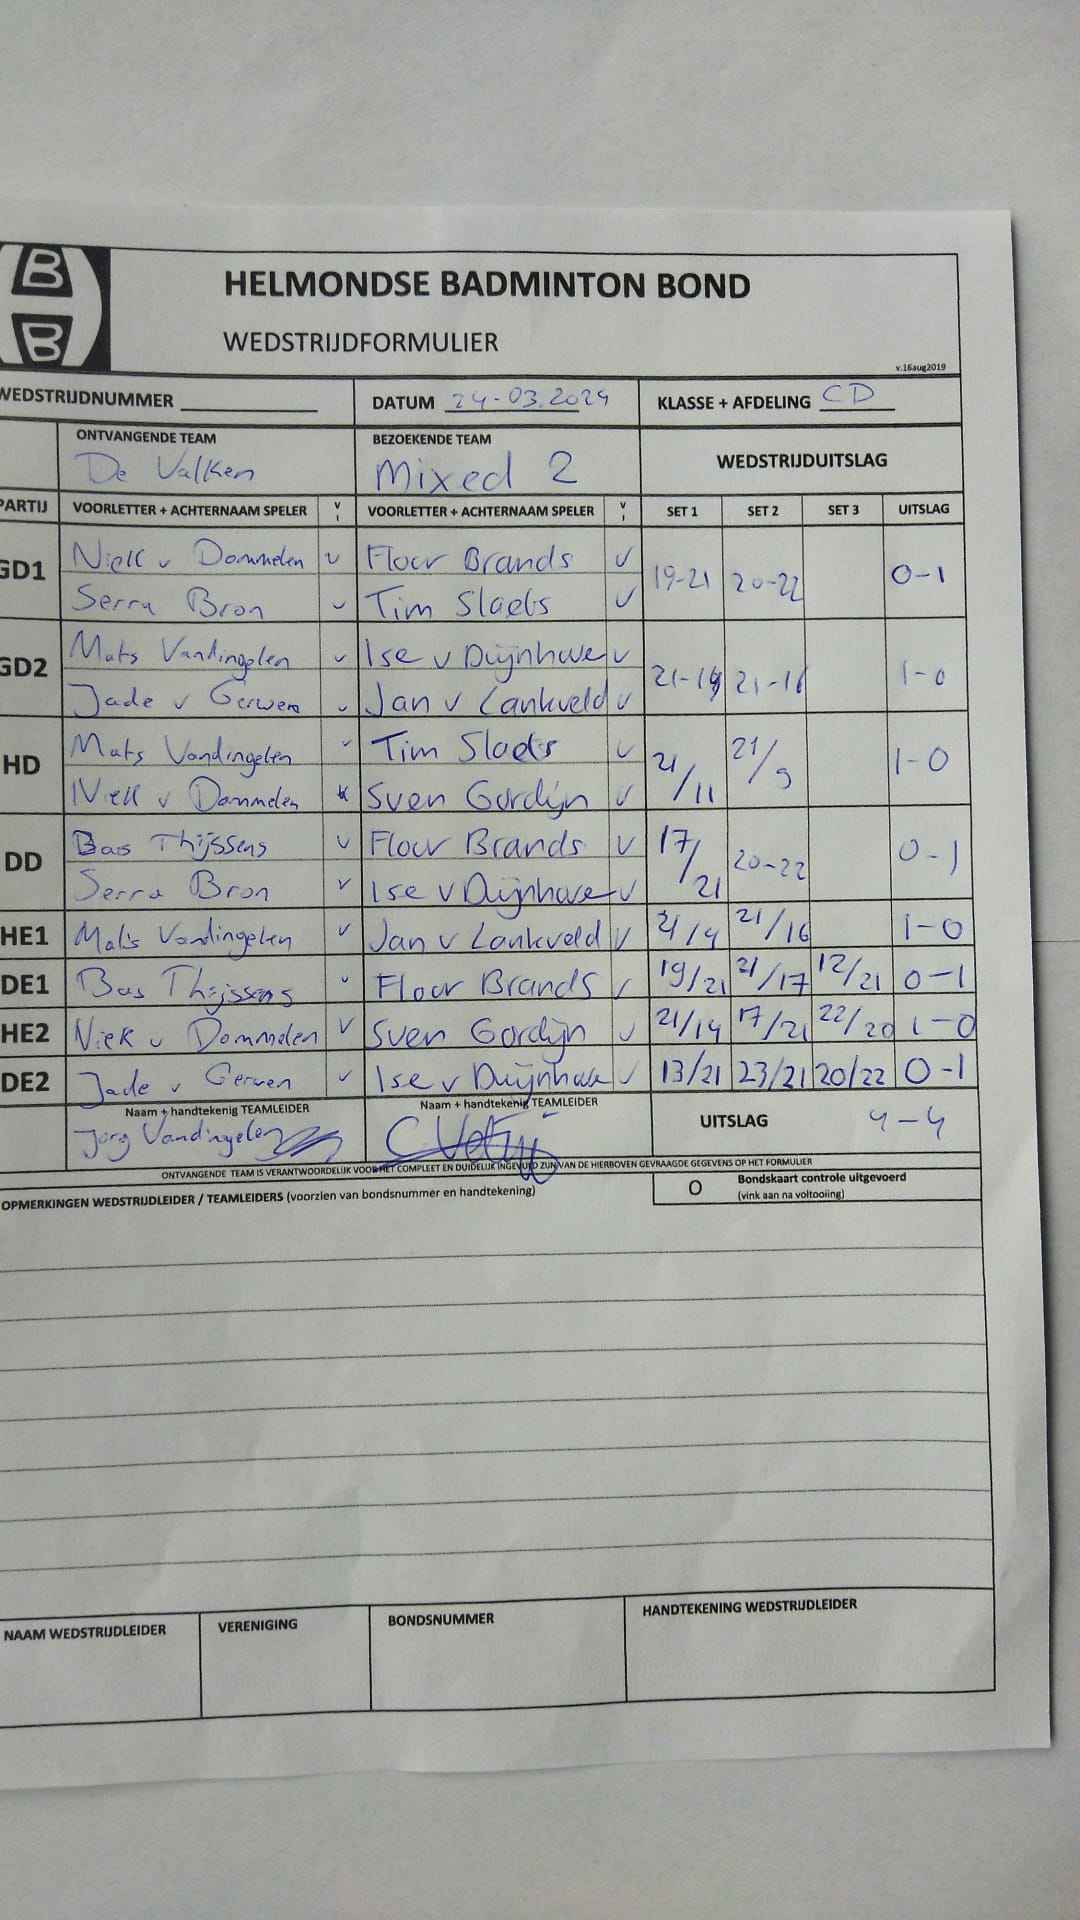 B
B
HELMONDSE BADMINTON BOND
WEDSTRIJDFORMULIER
v.16aug2019
WEDSTRIJDNUMMER DATUM 24-03.2024 KLASSE + AFDELING CD
ONTVANGENDE TEAM BEZOEKENDE TEAM WEDSTRIJDUITSLAG
De Valken Mixed 2
PARTIJ VOORLETTER + ACHTERNAAM SPELER V VOORLETTER + ACHTERNAAM SPELER V SET 1 SET 2 SET 3 UITSLAG
GD1 Niek v Dommelen v Floor Brands v 19-21 20-22 0-1
Serra Bron v Tim Slaets v
GD2 Mats Vandingelen v Ise v Duijnhove v 21-19 21-16 1-0
Jade v Gerwen v Jan v Lankveld v
HD Mats Vandingelen v Tim Slaets v 21/11 21/9 1-0
Niek v Dommelen Sven Gordijn v
DD Bas Thijssens v Floor Brands v 17/21 20-22 0-1
Serra Bron v Ise v Duijnhove v
HE1 Mats Vandingelen v Jan v Lankveld v 21/9 21/16 1-0
DE1 Bas Thijssens v Floor Brands v 19/21 21/17 12/21 0-1
HE2 Niek v Dommelen v Sven Gordijn v 21/19 17/21 22/20 1-0
DE2 Jade v Gerven v Ise v Duijnhove v 13/21 23/21 20/22 0-1
Naam + handtekenig TEAMLEIDER Naam + handtekenig TEAMLEIDER UITSLAG 4-4
Jorg Vandingelen
ONTVANGENDE TEAM IS VERANTWOORDELIJK VOOR HET COMPLEET EN DUIDELIJK INGEVULD ZIJN VAN DE HIERBOVEN GEVRAAGDE GEGEVENS OP HET FORMULIER
OPMERKINGEN WEDSTRIJDLEIDER / TEAMLEIDERS (voorzien van bondsnummer en handtekening) O Bondskaart controle uitgevoerd
(vink aan na voltooiing)
NAAM WEDSTRIJDLEIDER VERENIGING BONDSNUMMER HANDTEKENING WEDSTRIJDLEIDER